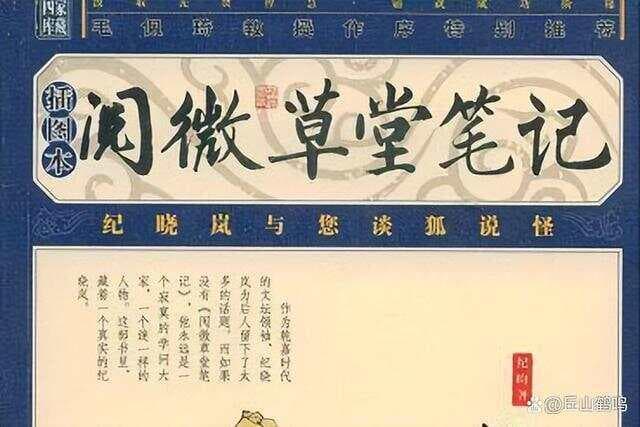 家藏
四库
毛佩琦教授作序特别推荐
插图本
阅微草堂笔记
纪晓岚与您谈狐说怪
作为乾嘉时代
的文坛领袖，纪晓
岚为后人留下了太
多的话题。而如果
没有《阅微草堂笔
记》，他永远是一
个寂寞的学问大
家，一个谜一样的
人物。这部书里，
藏着一个真实的纪
晓岚。
纪昀 著
@丘山鹤鸣